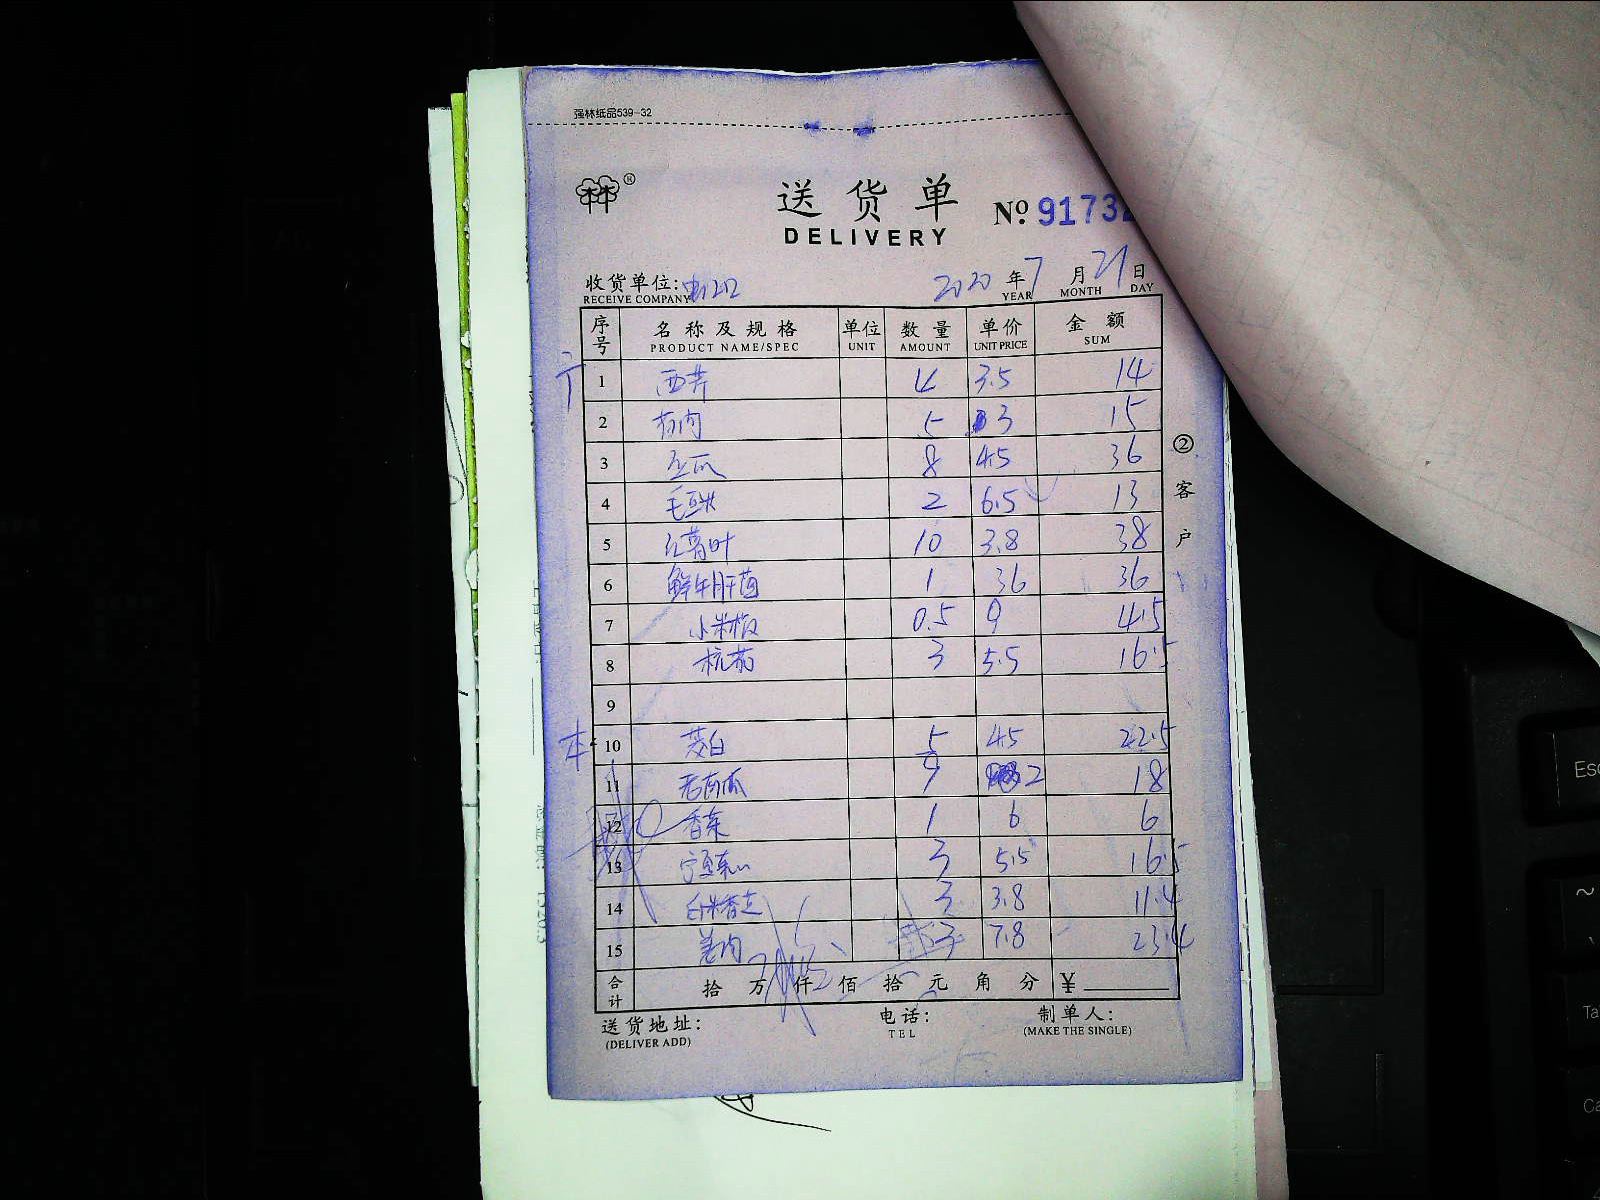 强林纸品539-32
林®
送货单 No 91732
DELIVERY
收货单位: 2020年7月21日
RECEIVE COMPANY YEAR MONTH DAY
序号 名称及规格 单位 数量 单价 金额
PRODUCT NAME/SPEC UNIT AMOUNT UNIT PRICE SUM
1 西芹 4 3.5 14
2 5 3 15
3 8 4.5 36
4 毛豆米 2 6.5 13
5 红薯叶 10 3.8 38
6 鲜牛肝菌 1 36 36
7 小米椒 0.5 9 4.5
8 杭茄 3 5.5 16.5
9
10 茭白 5 4.5 22.5
11 老南瓜 9 2 18
12 香菜 1 6 6
13 3 5.5 16.5
14 3 3.8 11.4
15 姜肉 3 7.8 23.4
合计 拾 万 仟 佰 拾 元 角 分 ¥
送货地址: 电话: 制单人:
(DELIVER ADD) TEL (MAKE THE SINGLE)
②客户
Esc
~